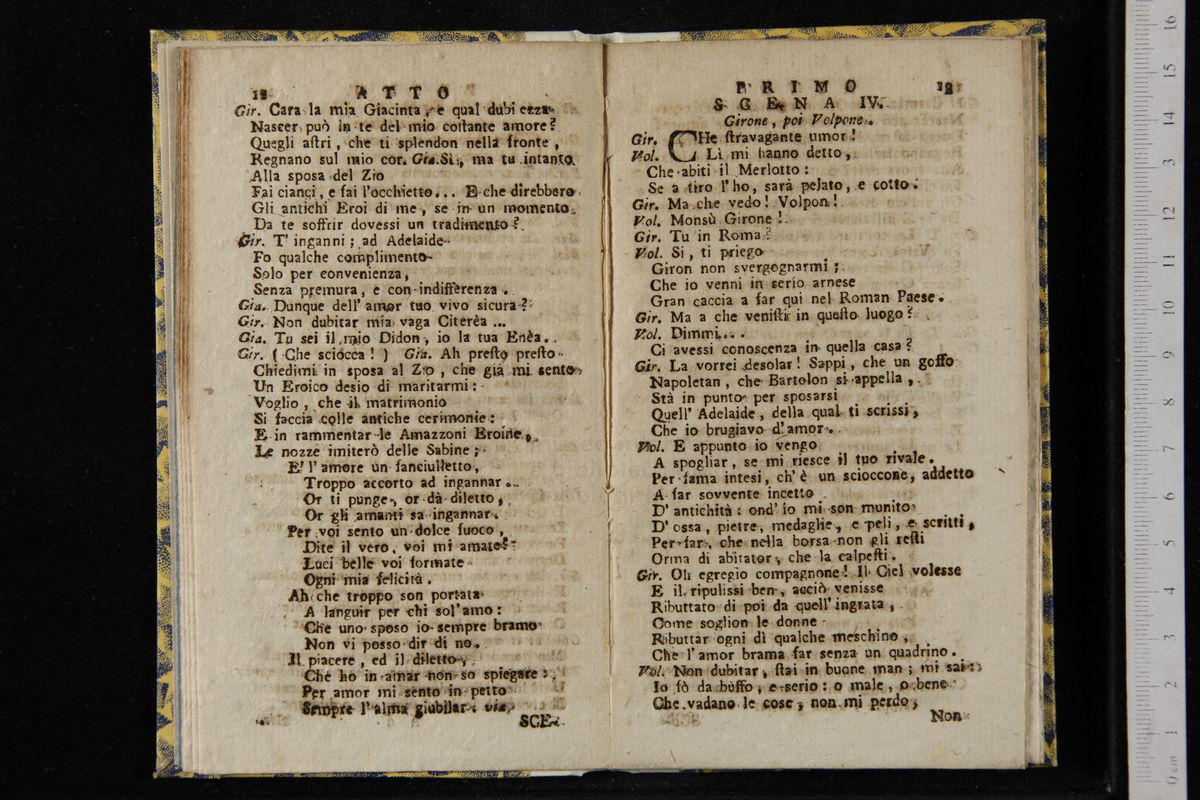 12 ATTO
Gir. Cara la mia Giacinta, e qual dubiezza
Nascer può in te del mio costante amore?
Quegli astri, che ti splendon nella fronte,
Regnano sul mio cor. Gia. Sì, ma tu intanto
Alla sposa del Zio
Fai cianci, e fai l'occhietto... E che direbbero
Gli antichi Eroi di me, se in un momento
Da te soffrir dovessi un tradimento?
Gir. T' inganni; ad Adelaide
Fo qualche complimento
Solo per convenienza,
Senza premura, e con indifferenza.
Gia. Dunque dell' amor tuo vivo sicura?
Gir. Non dubitar mia vaga Citerèa ...
Gia. Tu sei il mio Didon, io la tua Enèa.
Gir. ( Che sciocca! ) Gia. Ah presto presto
Chiedimi in sposa al Zio, che già mi sento
Un Eroico desio di maritarmi:
Voglio, che il matrimonio
Si faccia colle antiche cerimonie:
E in rammentar le Amazzoni Eroine,
Le nozze imiterò delle Sabine;
E' l' amore un fanciulletto,
Troppo accorto ad ingannar.
Or ti punge, or dà diletto,
Or gli amanti sa ingannar.
Per voi sento un dolce fuoco,
Dite il vero, voi mi amate?
Luci belle voi formate
Ogni mia felicità.
Ah che troppo son portata
A languir per chi sol' amo:
Che uno sposo io sempre bramo
Non vi posso dir di no.
Il piacere, ed il diletto,
Che ho in amar non so spiegare:
Per amor mi sento in petto
Sempre l' alma giubilar. via.
SCE-
PRIMO 13
SCENA IV.
Girone, poi Volpone.
Gir. CHe stravagante umor!
Vol. Lì mi hanno detto,
Che abiti il Merlotto:
Se a tiro l' ho, sarà pelato, e cotto.
Gir. Ma che vedo! Volpon!
Vol. Monsù Girone!
Gir. Tu in Roma?
Vol. Si, ti priego
Giron non svergognarmi;
Che io venni in serio arnese
Gran caccia a far qui nel Roman Paese.
Gir. Ma a che venisti in questo luogo?
Vol. Dimmi...
Ci avessi conoscenza in quella casa?
Gir. La vorrei desolar! Sappi, che un goffo
Napoletan, che Bartolon si appella,
Stà in punto per sposarsi
Quell' Adelaide, della qual ti scrissi,
Che io brugiavo d' amor.
Vol. E appunto io vengo
A spogliar, se mi riesce il tuo rivale.
Per fama intesi, ch' è un scioccone, addetto
A far sovvente incetto
D' antichità: ond' io mi son munito
D' ossa, pietre, medaglie, e peli, e scritti,
Per far, che nella borsa non gli resti
Orma di abitator, che la calpesti.
Gir. Oh egregio compagnone! Il Ciel volesse
E il ripulissi ben, acciò venisse
Ributtato di poi da quell' ingrata,
Come soglion le donne
Ributtar ogni dì qualche meschino,
Che l' amor brama far senza un quadrino.
Vol. Non dubitar, stai in buone man; mi sai:
Io fò da buffo, e serio: o male, o bene
Che vadano le cose, non mi perdo,
Non